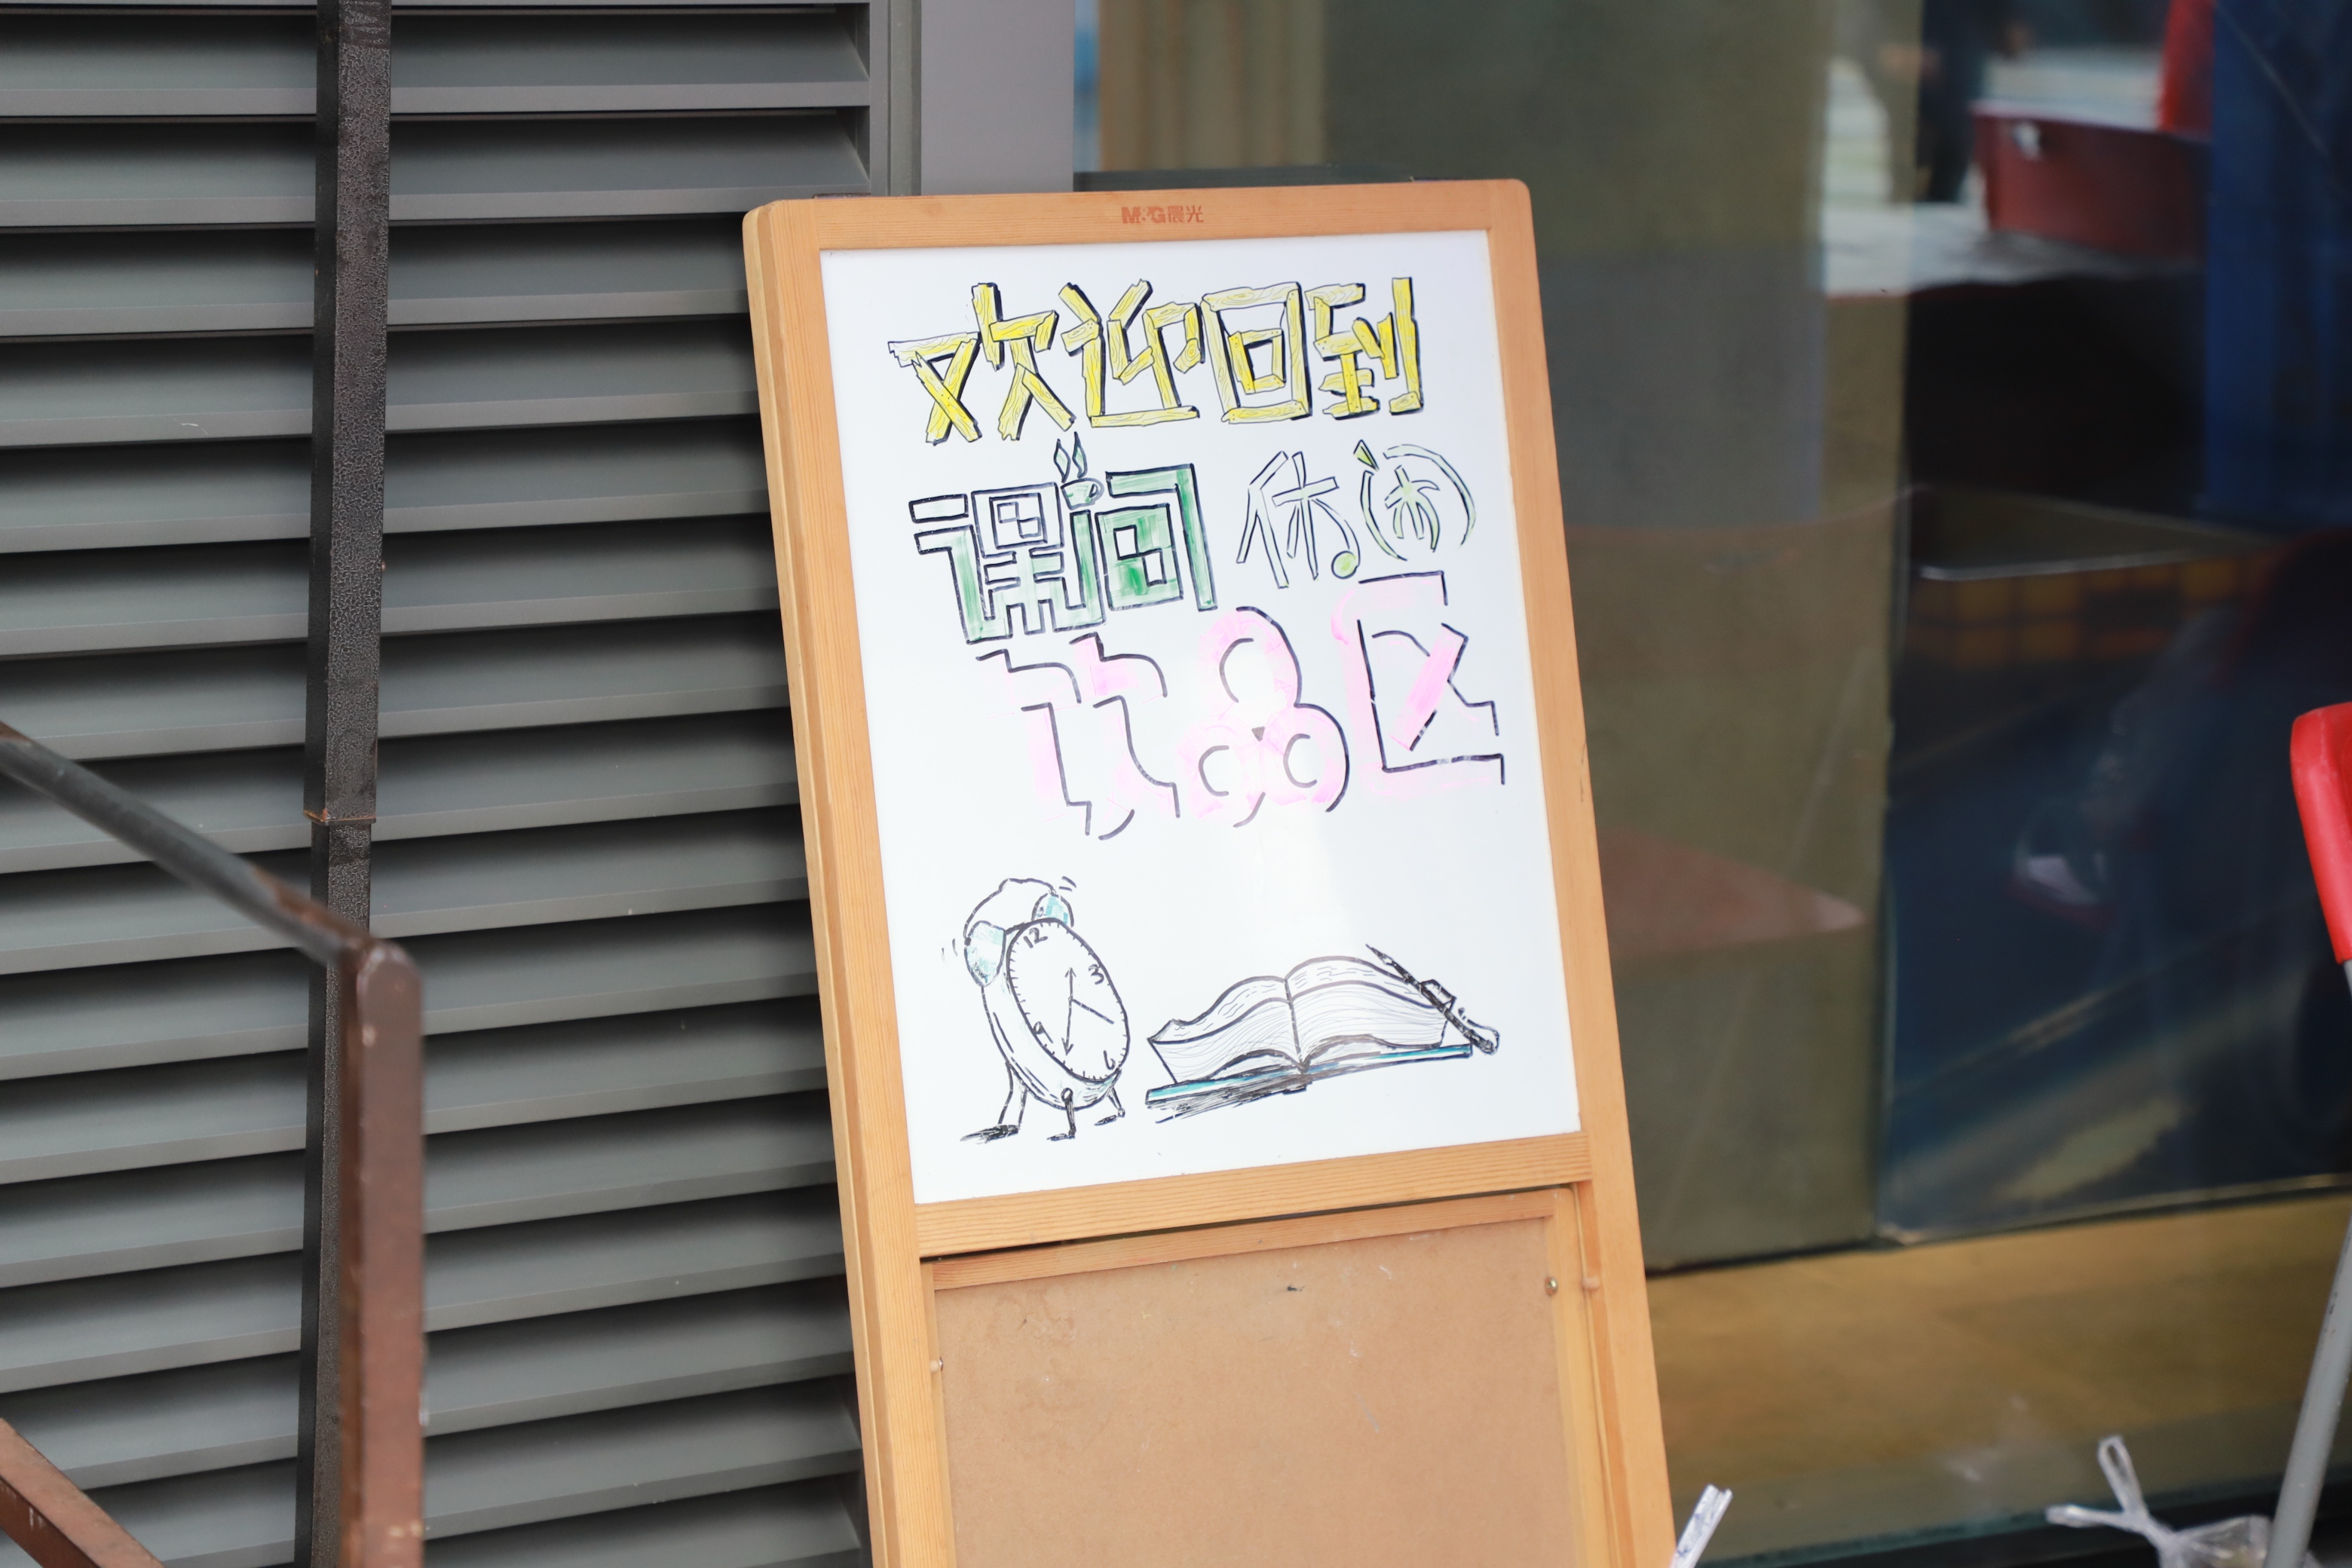 M&G晨光
欢迎回到
课间休闲
饮品区
12
3
9
6